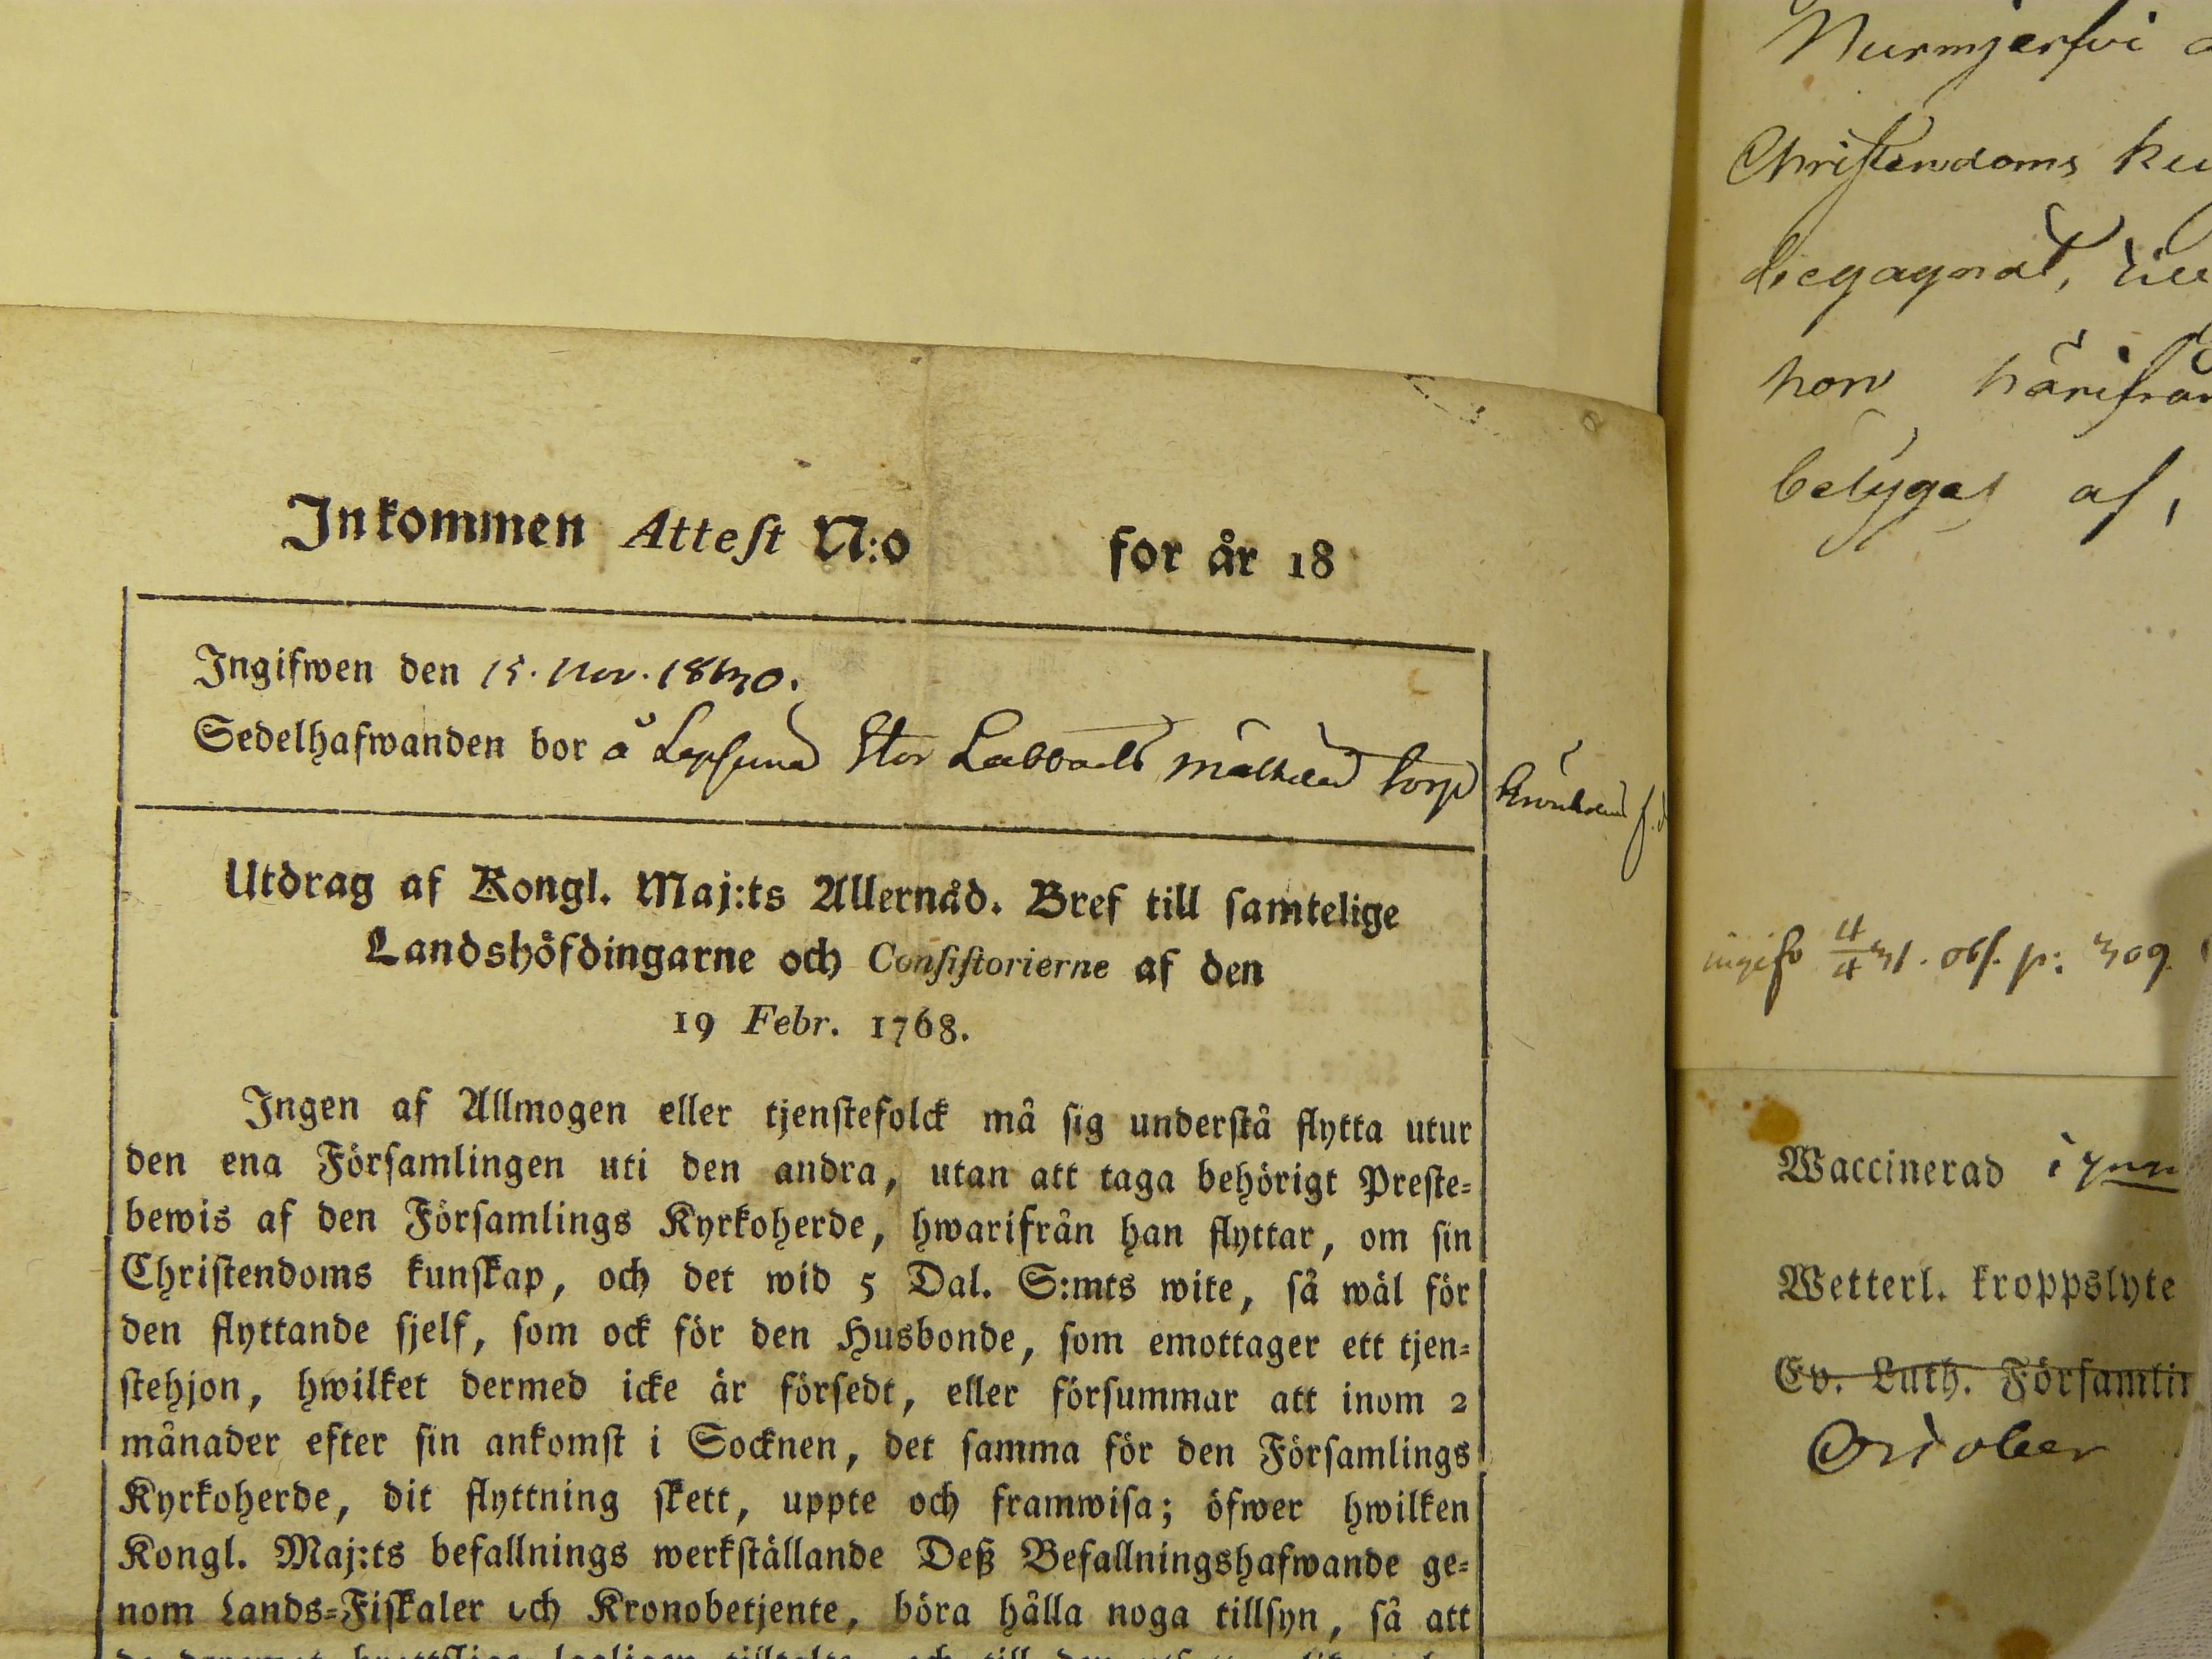 Inkommen Attest N:o för år 18
Ingifwen den 15. Nov. 1830.
Sedelhafwanden bor å Stor Labbads torp
Utdrag af Kongl. Maj:ts Allernåd. Bref till samtelige
Landshöfdingarne och Consistorierne af den
19 Febr. 1768.
Ingen af Allmogen eller tjenstefolck må sig understå flytta utur
den ena Församlingen uti den andra, utan att taga behörigt Preste-
bewis af den Församlings Kyrkoherde, hwarifrån han flyttar, om sin
Christendoms kunskap, och det wid 5 Dal. S:mts wite, så wäl för
den flyttande sjelf, som ock för den Husbonde, som emottager ett tjen-
stehjon, hwilket dermed icke är försedt, eller försummar att inom 2
månader efter sin ankomst i Socknen, det samma för den Församlings
Kyrkoherde, dit flyttning skett, uppte och framwisa; öfwer hwilken
Kongl. Maj:ts befallnings werkställande Deß Befallningshafwande ge-
nom Lands-Fiskaler och Kronobetjente, böra hålla noga tillsyn, så att
Nurmjerfvi
Christendoms
begagnat,
hon härifrån
betygas af,
ingifv 4/4 31. obs. p: 309
Waccinerad
Wetterl. kroppslyte
Ev. Luth. Församlin
October